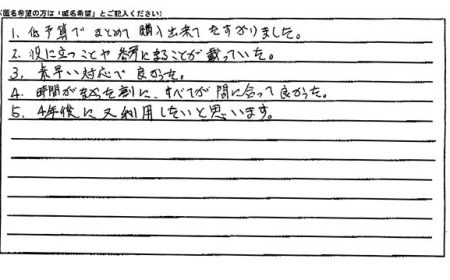 (匿名希望の方は「匿名希望」とご記入ください)
1. 低予算でまとめて購入出来てたすかりました。
2. 役に立つことや参考になることが載っていた。
3. 素早い対応で良かった。
4. 時間がなかった割に、すべてが間に合って良かった。
5. 4年後に又利用したいと思います。